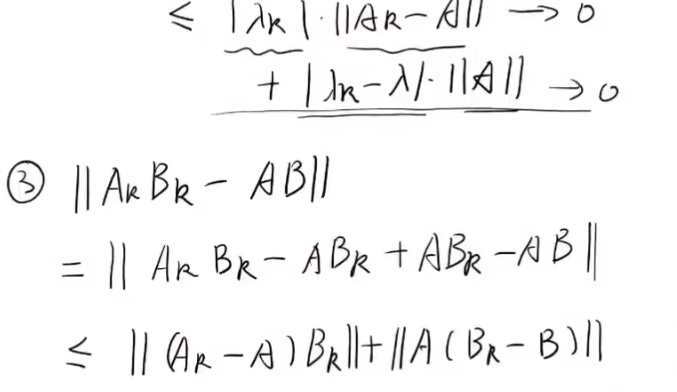 ≤ |λk|·||Ak−A|| → 0
+ |λk−λ|·||A|| → 0
③ ||AkBk − AB||
= || AkBk − ABk + ABk − AB ||
≤ ||(Ak−A)Bk|| + ||A(Bk−B)||